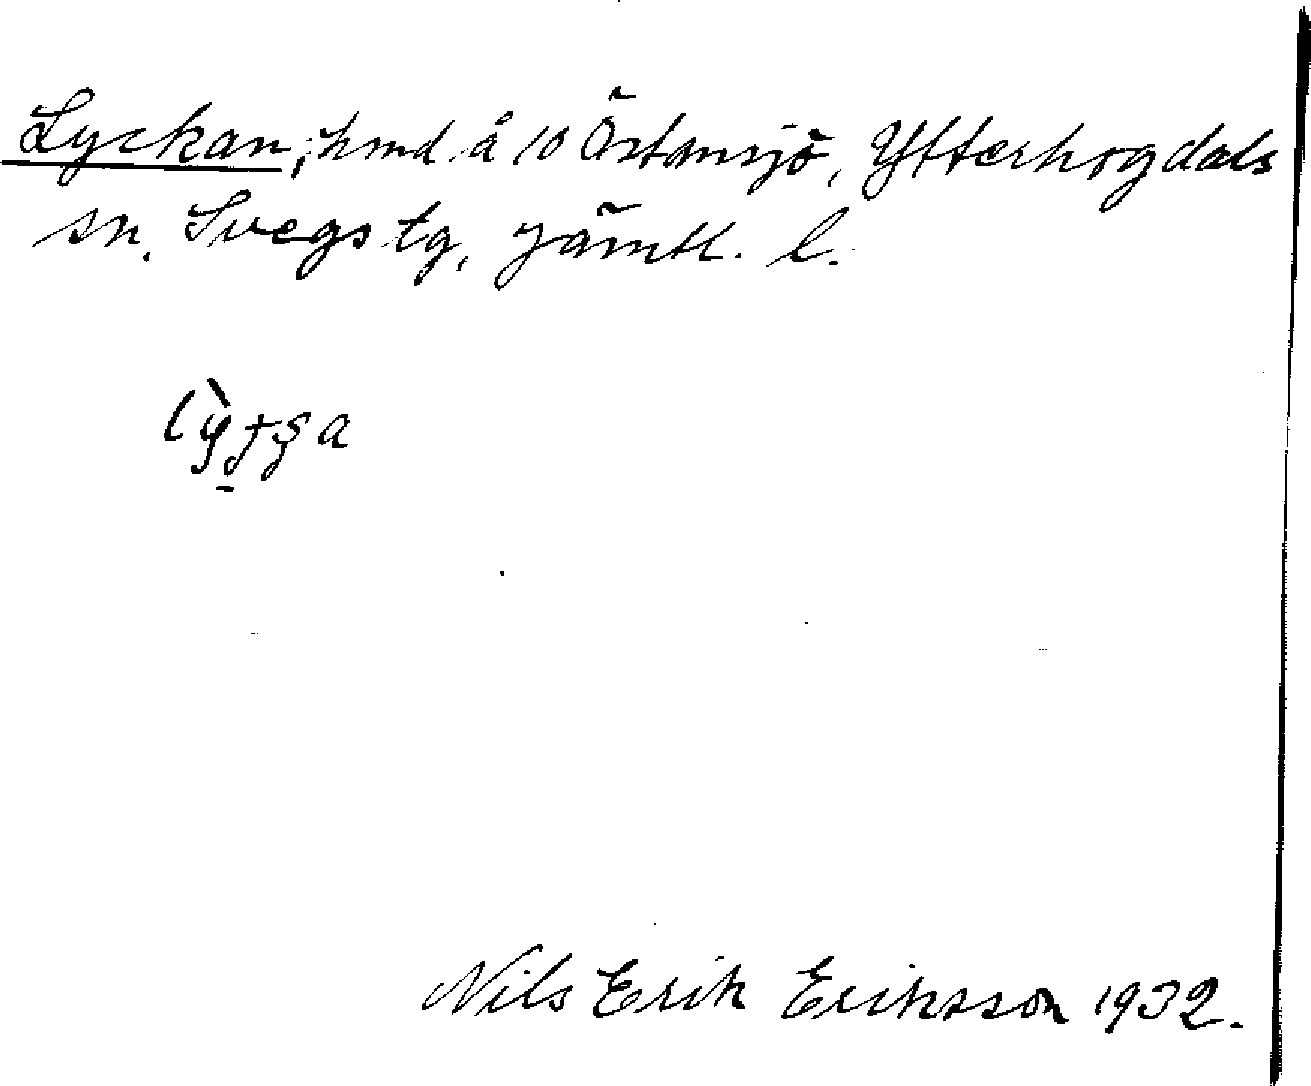 Lyckan, hmd å 10 Östansjö, Ytterhogdals
sn. Svegs tg, Jämtl. l.
Nils Erik Eriksson 1932.